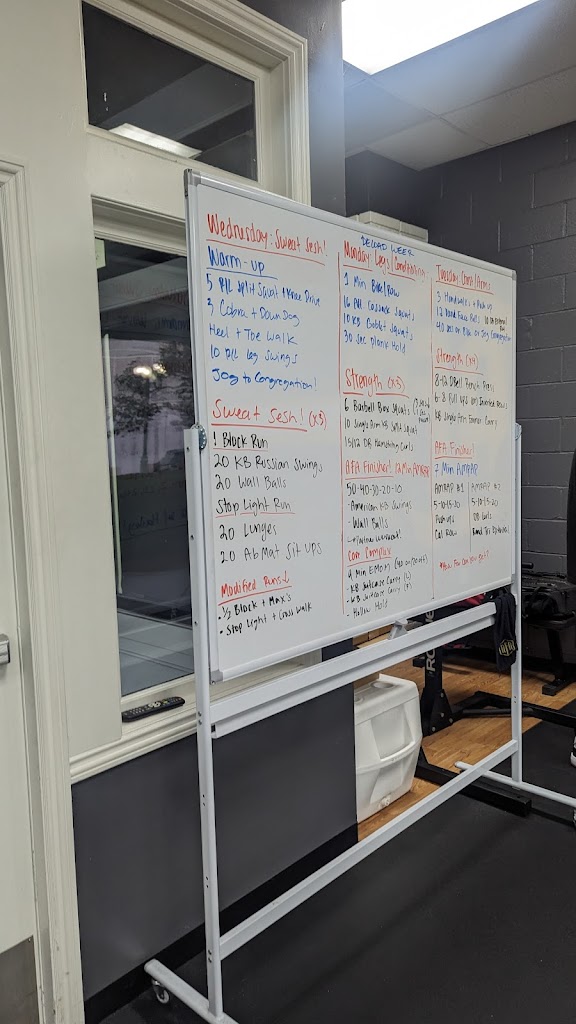 Wednesday: Sweat Sesh!
Warm-up
5 P/L Split Squat + Knee Drive
3 Cobra + Down Dog
Heel + Toe Walk
10 P/L Leg Swings
Jog to Congregation!
Sweat Sesh! (x3)
1 Block Run
20 KB Russian Swings
20 Wall Balls
Stop Light Run
20 Lunges
20 AbMat Sit Ups
Modified Runs ↓
• 1/2 Block + Max's
• Stop Light + Cross Walk
DELOAD WEEK
Monday: Legs/Conditioning
1 Min Bike/Row
16 Alt Cossack Squats
10 KB Goblet Squats
30 sec Plank Hold
Strength (x3)
6 Barbell Box Squats
10 Single Arm KB Split Squat
15/12 DB Hamstring Curls
AFA Finisher! 12 Min AMRAP
50-40-30-20-10
- American KB Swings
- Wall Balls
Core Complex
4 Min EMOM
- KB Suitcase Carry (L)
- KB Suitcase Carry (R)
- Hollow Hold
Tuesday: Chest/Arms
3 Handwalks + Push up
12 Band Face Pulls
Strength (x4)
8-12 DBell Bench Press
6-8 Pull Ups
KB Single Arm Farmer Carry
AFA Finisher!
7 Min AMRAP
AMRAP #1 AMRAP #2
5-10-15-20 5-10-15-20
Push ups DB Curls
Cal Row
*How far can you get?